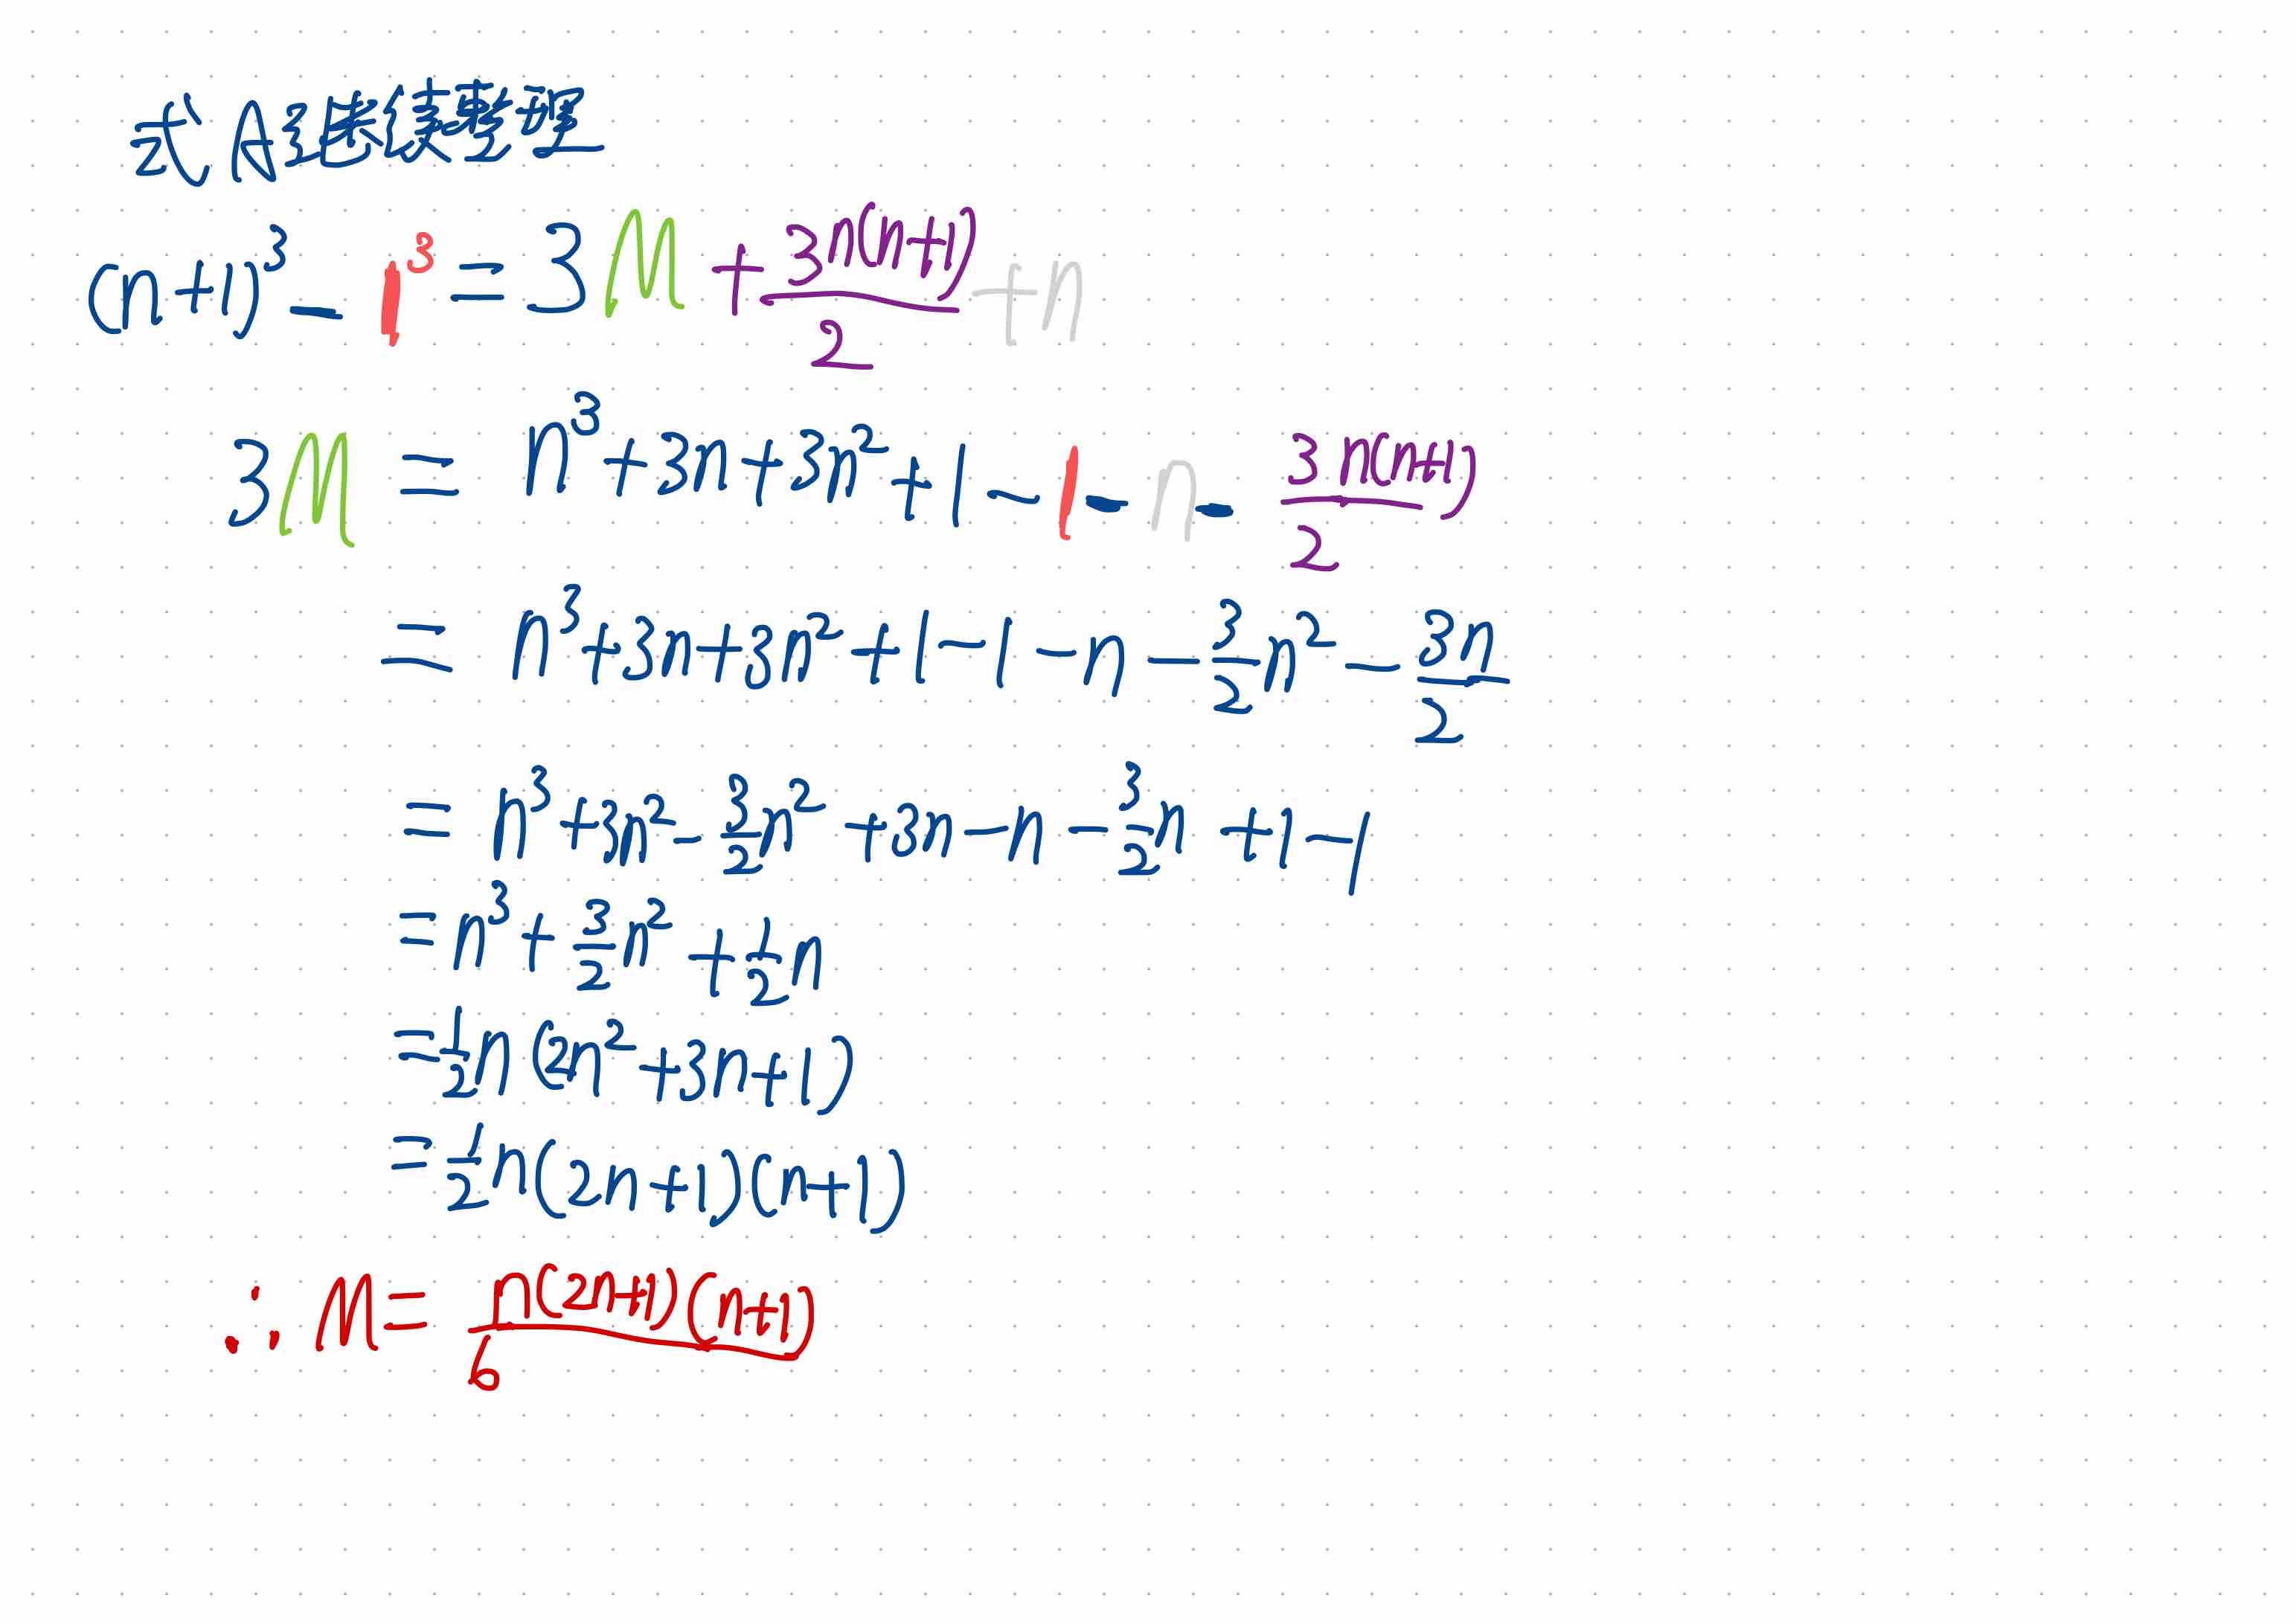 式A
(n+1)³-1³=3M+\frac{3n(n+1)}{2}+n
3M = n³+3n+3n²+1-1-n-\frac{3n(n+1)}{2}
= n³+3n+3n²+1-1-n-\frac{3}{2}n²-\frac{3n}{2}
= n³+3n²-\frac{3}{2}n²+3n-n-\frac{3}{2}n+1-1
=n³+\frac{3}{2}n²+\frac{1}{2}n
=\frac{1}{2}n(2n²+3n+1)
=\frac{1}{2}n(2n+1)(n+1)
∴ M=\frac{n(2n+1)(n+1)}{6}